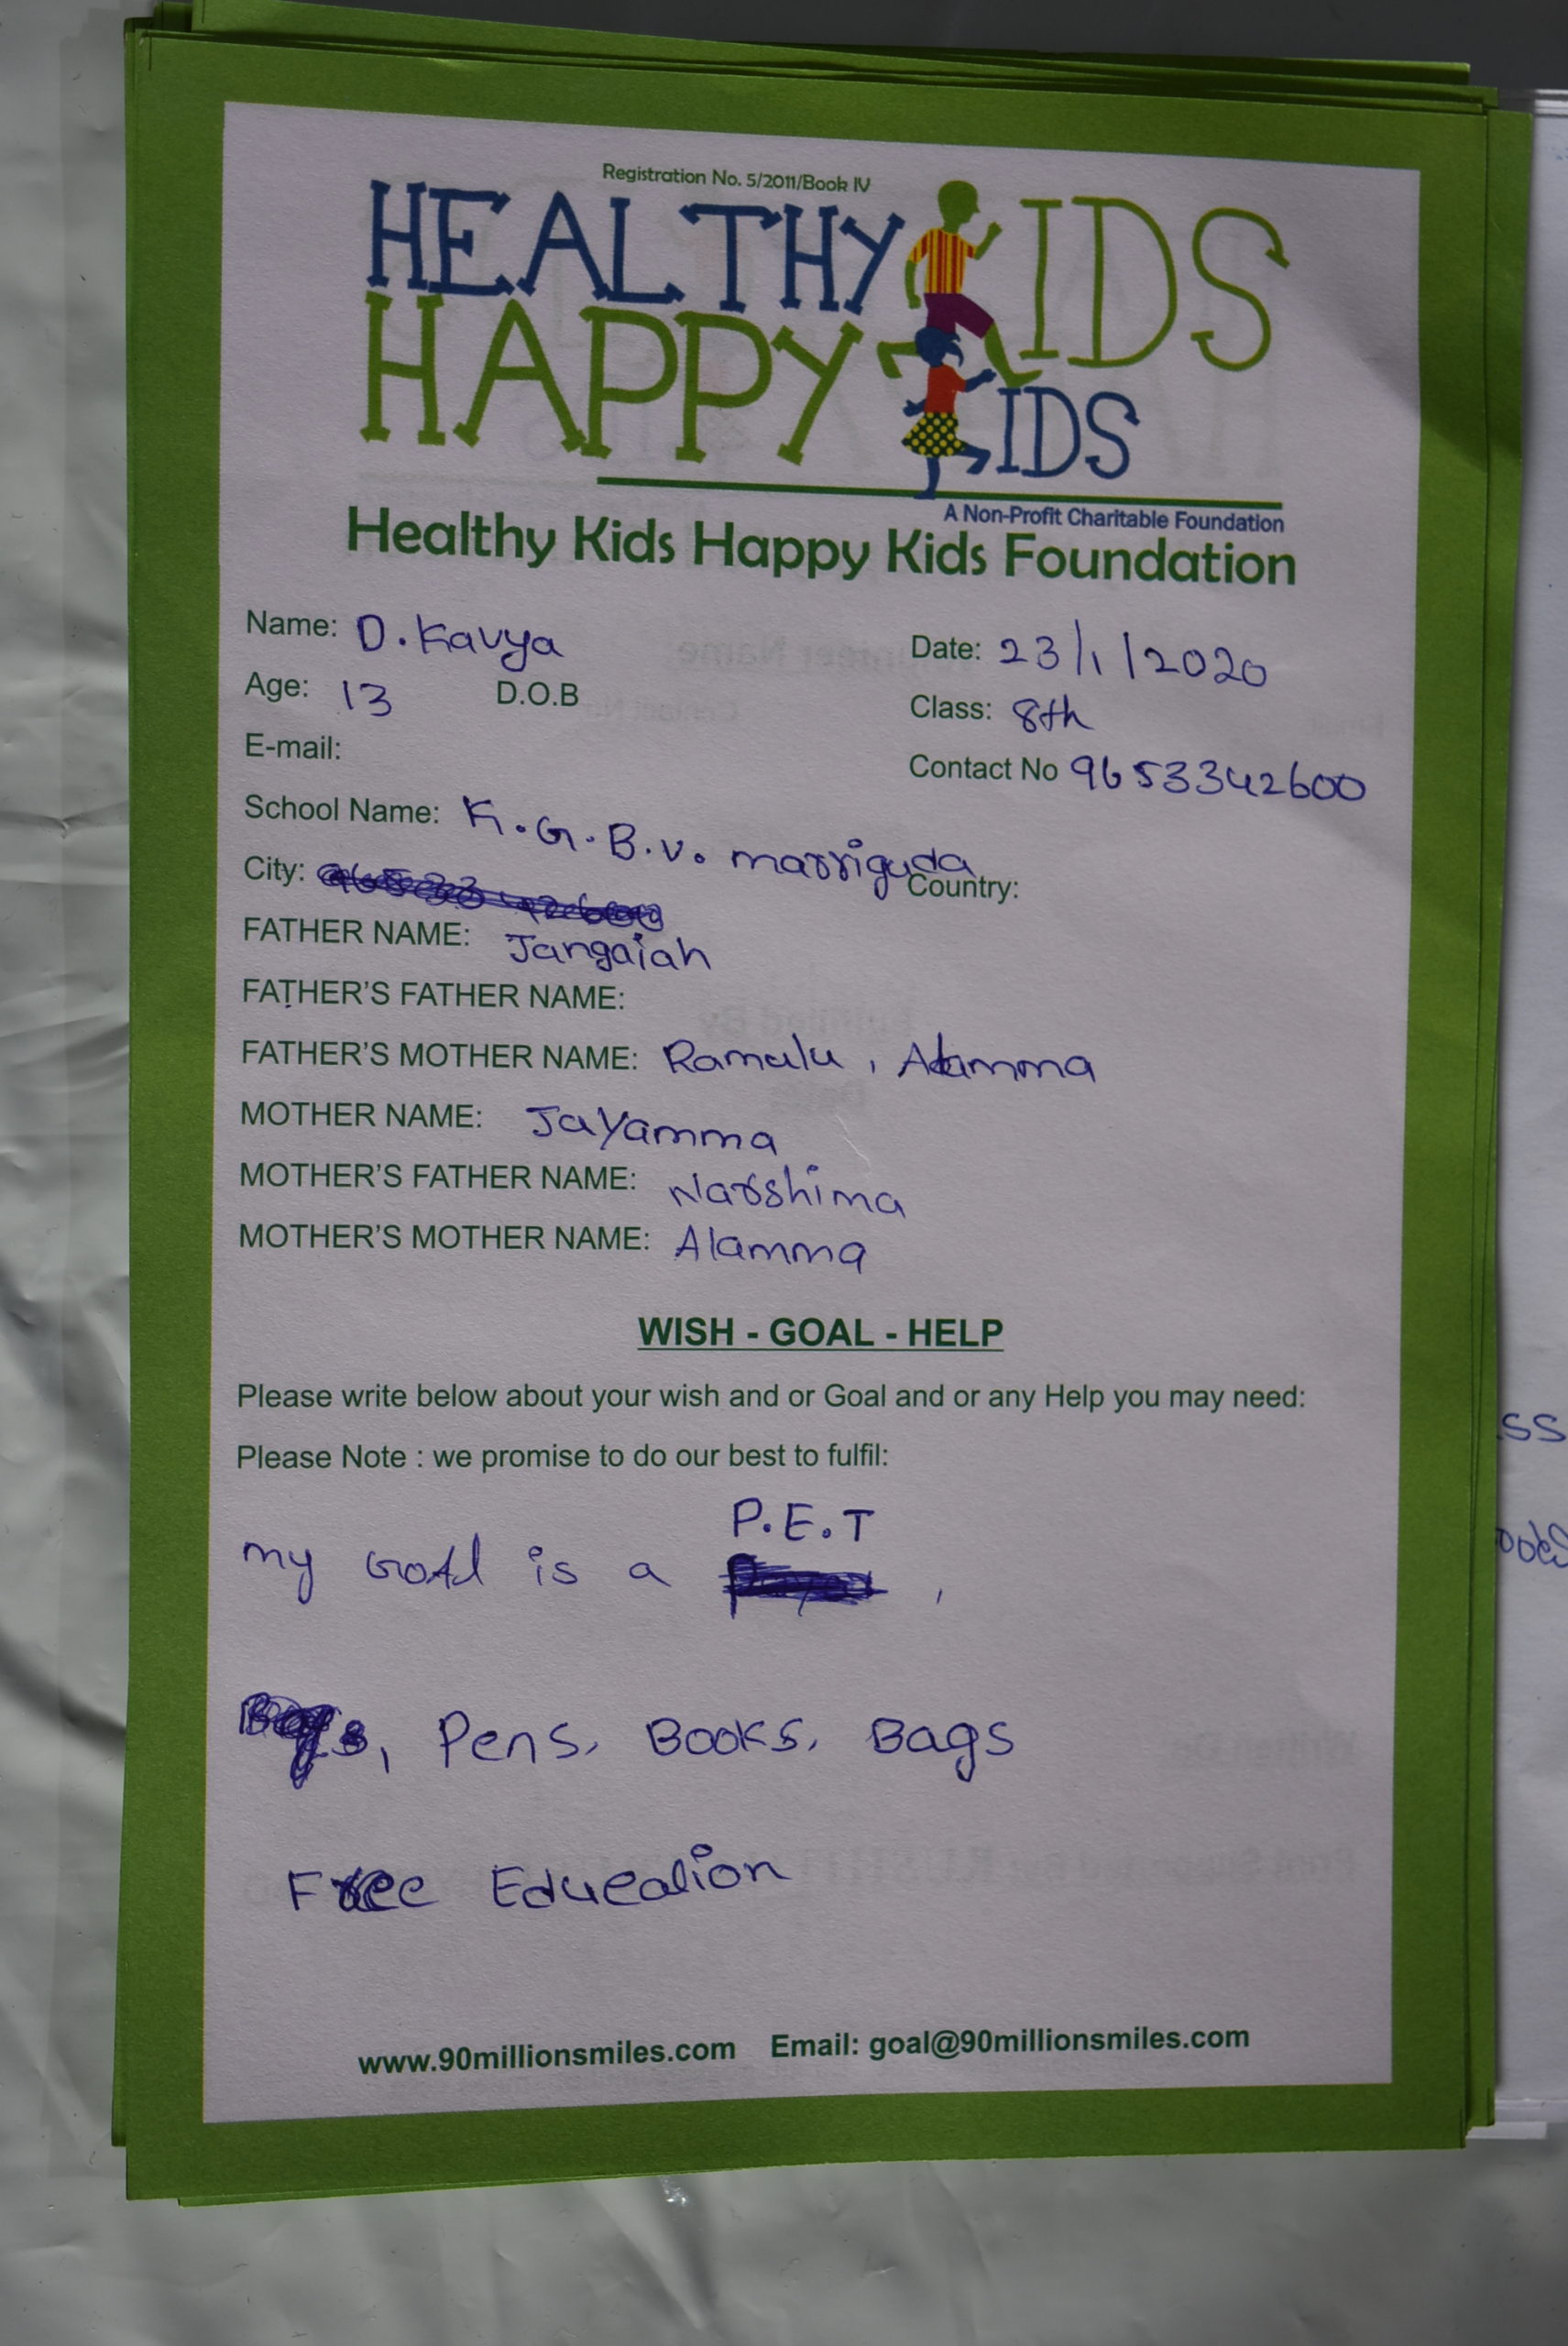 Registration No. 5/2011/Book IV
HEALTHY KIDS
HAPPY KIDS
A Non-Profit Charitable Foundation
Healthy Kids Happy Kids Foundation
Name: D. Kavya Date: 23/1/2020
Age: 13 D.O.B Class: 8th
E-mail: Contact No 9653342600
School Name: K.G.B.V. marriguda
City: Country:
FATHER NAME: Jangaiah
FATHER'S FATHER NAME:
FATHER'S MOTHER NAME: Ramulu,
MOTHER NAME: Jayamma
MOTHER'S FATHER NAME: Narshima
MOTHER'S MOTHER NAME: Alamma
WISH - GOAL - HELP
Please write below about your wish and or Goal and or any Help you may need:
Please Note : we promise to do our best to fulfil:
my Goal is a P.E.T ,
, Pens, Books, Bags
Free Education
www.90millionsmiles.com Email: goal@90millionsmiles.com